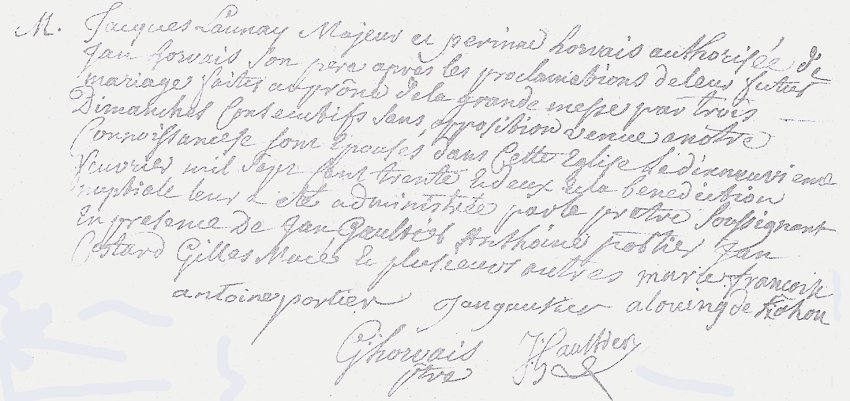 M. Jacques Launay Majeur et perinne horvais authorisée de
Jan horvais son père après les proclamations de leur futur
mariage faites au prône de la grande messe par trois
Dimanches Consecutifs sans opposition venue a notre
Connoissance se sont epousés dans Cette Eglise le dixneuvieme
feuvrier mil sept cent trente et deux et la benediction
nuptiale leur a eté administrée par le prêtre Soussignant
En presence De Jan Gaultier Anthoine portier Jan
Costard Gilles Macé et plusieurs autres marie françoise
antoine portier Jan gautier a louing de
G horvais J Gaultier
ptre